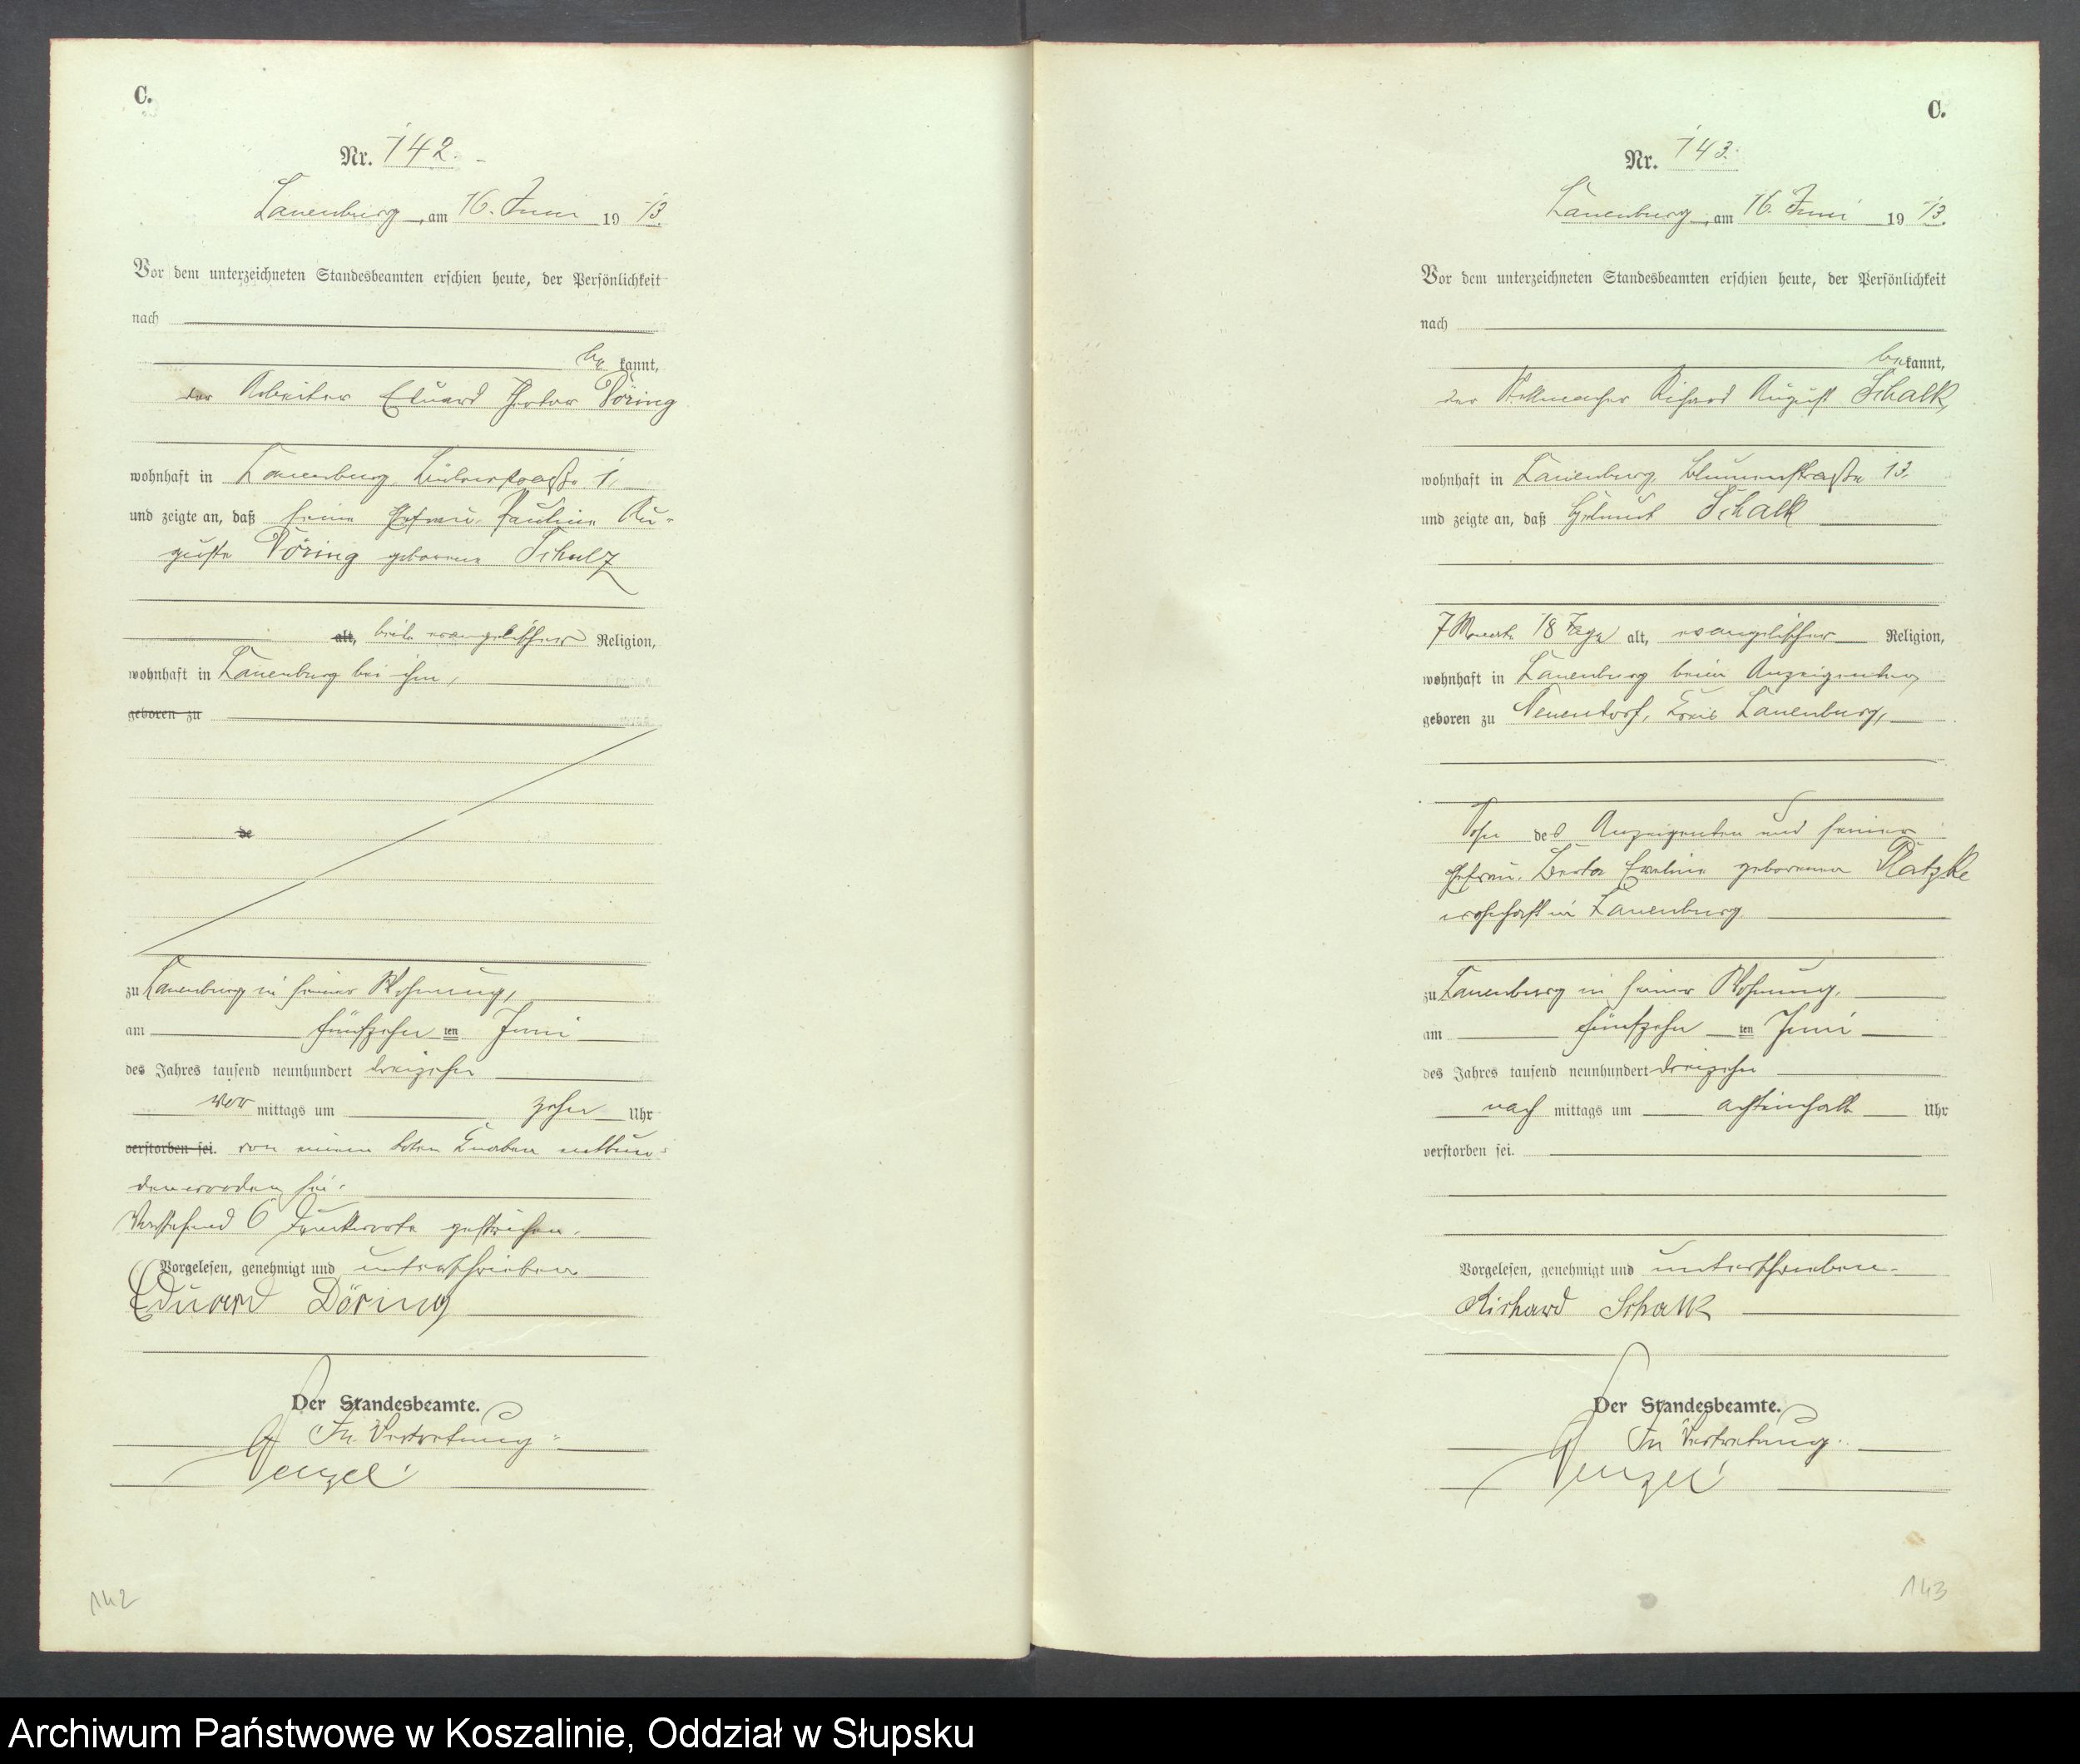 C.
Nr. 142.
Lauenburg, am 16. Juni 1913.
Vor dem unterzeichneten Standesbeamten erschien heute, der Persönlichkeit
nach
be kannt,
der Arbeiter Eduard Döring
wohnhaft in Lauenburg 1,
und zeigte an, daß seine Ehefrau Pauline Au-
guste Döring geborene Schulz
alt, beide evangelischer Religion,
wohnhaft in Lauenburg bei ihm,
geboren zu
de
zu Lauenburg in seiner Wohnung,
am fünfzehn ten Juni
des Jahres tausend neunhundert dreizehn
vor mittags um zehn Uhr
verstorben sei. von einem toten Knaben entbun-
den worden sei.
Vorstehend 6 Druckworte gestrichen.
Vorgelesen, genehmigt und unterschrieben
Eduard Döring
Der Standesbeamte.
In Vertretung.
142
C.
Nr. 143.
Lauenburg, am 16. Juni 1913.
Vor dem unterzeichneten Standesbeamten erschien heute, der Persönlichkeit
nach
be kannt,
der Stellmacher Richard August Schalk,
wohnhaft in Lauenburg, Blumenstraße 13.
und zeigte an, daß Helmut Schalk
7 Monate 18 Tage alt, evangelischer Religion,
wohnhaft in Lauenburg beim Anzeigenden
geboren zu Neuendorf, Kreis Lauenburg,
Sohn des Anzeigenden und seiner
Ehefrau Berta geborenen
wohnhaft in Lauenburg
zu Lauenburg in seiner Wohnung,
am fünfzehn ten Juni
des Jahres tausend neunhundert dreizehn
nach mittags um achteinhalb Uhr
verstorben sei.
Vorgelesen, genehmigt und unterschrieben.
Richard Schalk
Der Standesbeamte.
In Vertretung.
143
Archiwum Państwowe w Koszalinie, Oddział w Słupsku